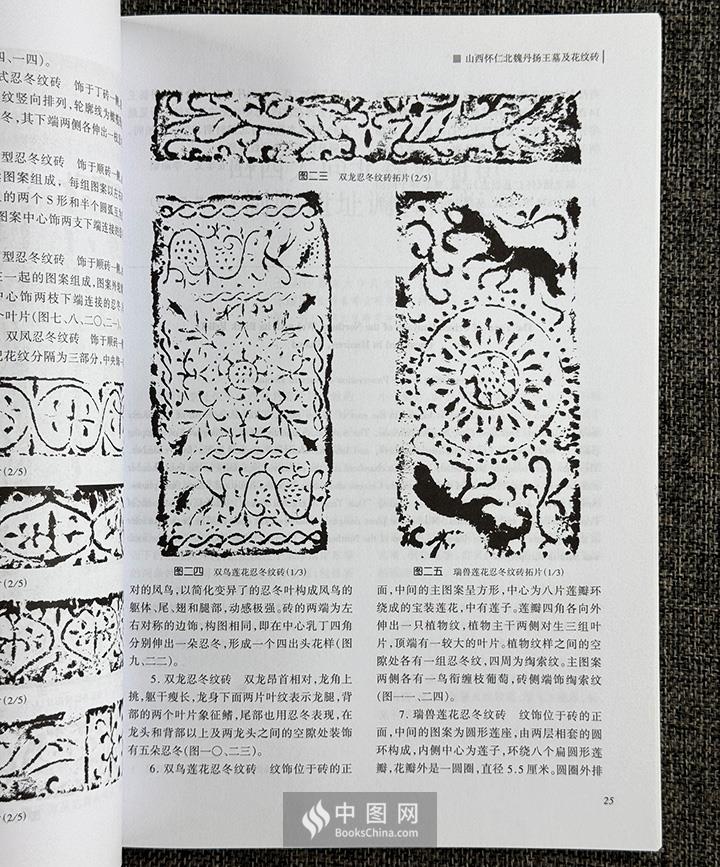 四、一四)。
式忍冬纹砖 饰于丁砖一侧
纹竖向排列,轮廓线为
冬,其下端两侧各伸出一
型忍冬纹砖 饰于顺砖一侧
图案组成,每组图案以左右
的两个S形和半个圆弧
图案中心饰两支下端连接的
型忍冬纹砖 饰于顺砖一侧
在一起的图案组成,图案外
中心饰两枝下端连接的忍冬
个叶片(图七、八、二〇、二一)
双凤忍冬纹砖 饰于顺砖一
花纹分隔为三部分,中央
(2/5)
(2/5)
(2/5)
(2/5)
山西怀仁北魏丹扬王墓及花纹砖
图二三 双龙忍冬纹砖拓片(2/5)
图二四 双鸟莲花忍冬纹砖(1/3)
图二五 瑞兽莲花忍冬纹砖拓片(1/3)
对的凤鸟,以简化变异了的忍冬叶构成凤鸟的
躯体、尾、翅和腿部,动感极强。砖的两端为左
右对称的边饰,构图相同,即在中心乳丁四角
分别伸出一朵忍冬,形成一个四出头花样(图
九、二二)。
5. 双龙忍冬纹砖 双龙昂首相对,龙角上
挑,躯干瘦长,龙身下面两片叶纹表示龙腿,背
部的两个叶片象征鳍,尾部也用忍冬表现,在
龙头和背部以上及两龙头之间的空隙处装饰
有五朵忍冬(图一〇、二三)。
6. 双鸟莲花忍冬纹砖 纹饰位于砖的正
面,中间的主图案呈方形,中心为八片莲瓣环
绕成的宝装莲花,中有莲子。莲瓣四角各向外
伸出一只植物纹,植物主干两侧对生三组叶
片,顶端有一较大的叶片。植物纹样之间的空
隙处各有一组忍冬纹,四周为绹索纹。主图案
两侧各有一鸟衔缠枝葡萄,砖侧端饰绹索纹
(图一一、二四)。
7. 瑞兽莲花忍冬纹砖 纹饰位于砖的正
面,中间的图案为圆形莲座,由两层相套的圆
环构成,内侧中心为莲子,环绕八个扁圆形莲
瓣,花瓣外是一圆圈,直径5.5厘米。圆圈外排
25
中图网
BooksChina.com